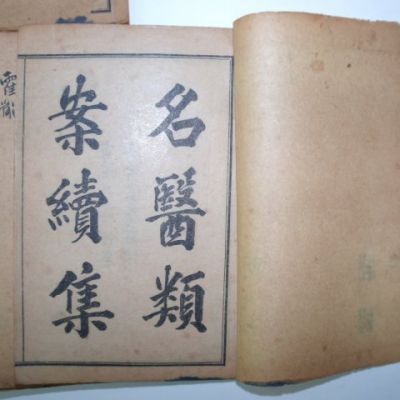 名醫類
案續集